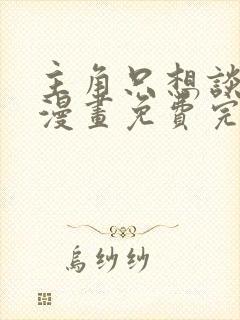 主角只想談
漫畫免費完
烏紗紗